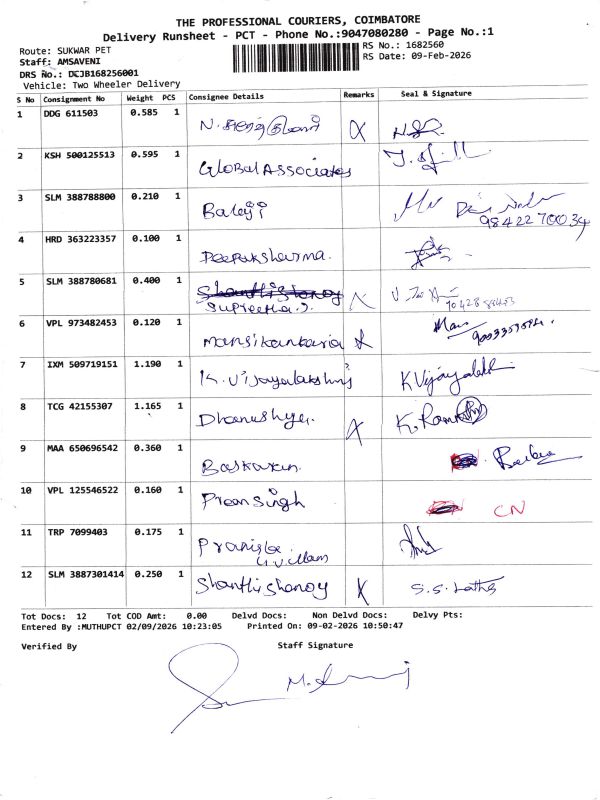 THE PROFESSIONAL COURIERS, COIMBATORE
Delivery Runsheet - PCT - Phone No.:9047080280 - Page No.:1
Route: SUKWAR PET
RS No.: 1682560
Staff: AMSAVENI
RS Date: 09-Feb-2026
DRS No.: DCJB168256001
Vehicle: Two Wheeler Delivery
S No Consignment No Weight PCS Consignee Details Remarks Seal & Signature
1 DDG 611503 0.585 1 N.
2 KSH 500125513 0.595 1 Global Associates
3 SLM 388788800 0.210 1 Balaji 98422 70034
4 HRD 363223357 0.100 1 Deepaksharma.
5 SLM 388780681 0.400 1 Shanthi Shanoy
Supreetha.S.
6 VPL 973482453 0.120 1 Mansikankaria
7 IXM 509719151 1.190 1 K. Vijayalakshmi K Vijayalakshmi
8 TCG 42155307 1.165 1 Dhanushya.
9 MAA 650696542 0.360 1 Baskaran
10 VPL 125546522 0.160 1 Prem Singh CN
11 TRP 7099403 0.175 1
12 SLM 3887301414 0.250 1 Shanthi Shanoy S.S. Latha
Tot Docs: 12 Tot COD Amt: 0.00 Delvd Docs: Non Delvd Docs: Delvy Pts:
Entered By :MUTHUPCT 02/09/2026 10:23:05 Printed On: 09-02-2026 10:50:47
Verified By Staff Signature